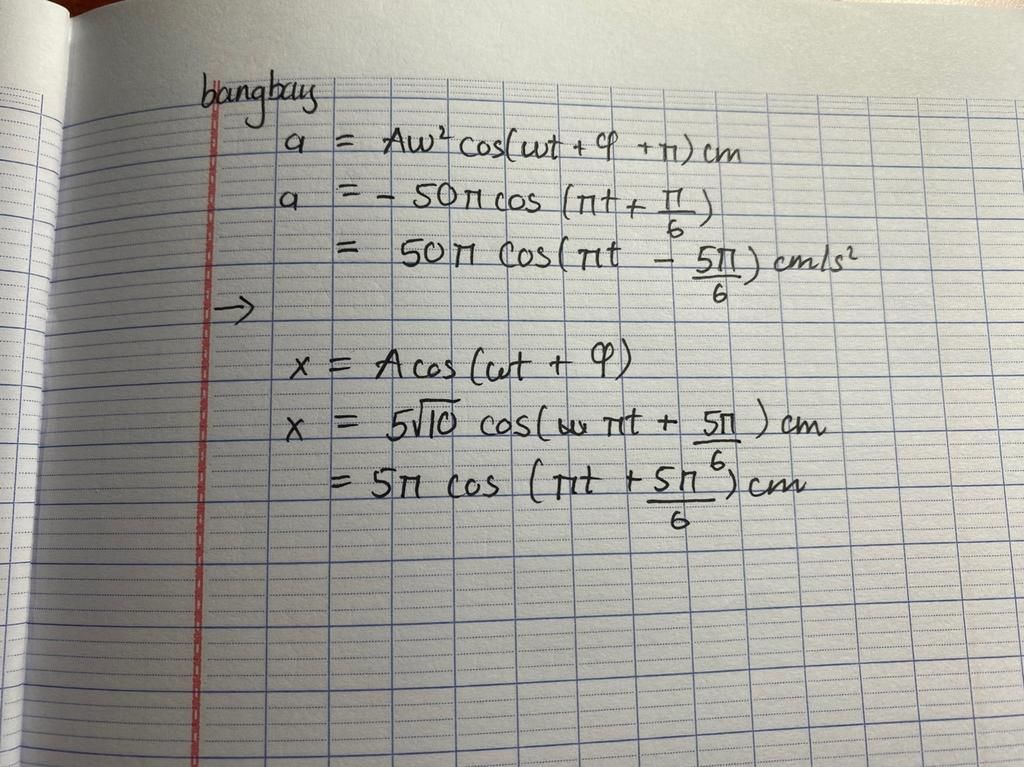 bangbay
a = Aw² cos(wt + φ + π) cm
a = - 50π cos (πt + π/6)
= 50π cos(πt - 5π/6) cm/s²
→
x = A cos (wt + φ)
x = 5√10 cos(w πt + 5π/6) cm
= 5π cos (πt + 5π/6) cm